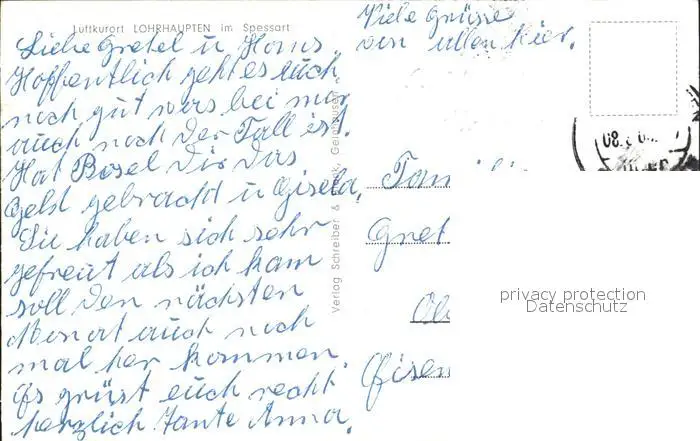 Luftkurort LOHRHAUPTEN im Spessart
Liebe Gretel u Hans
Hoffentlich geht es euch
noch gut was bei mir
auch noch der Fall ist.
Hat Rosel Dir das
Geld gebracht u Gisela,
Sie haben sich sehr
gefreut als ich kam
soll den nächsten
Monat auch noch
mal her kommen
Es grüst euch recht
herzlich Tante Anna.
Viele Grüsse
von allen hier.
Verlag Schreiber &
Fam
Gret
Eisen
privacy protection
Datenschutz